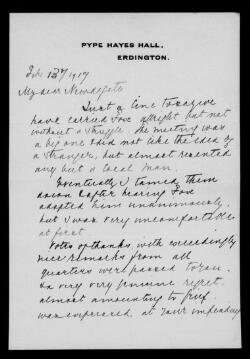 PYPE HAYES HALL,
ERDINGTON.
Feb 13th 1917
My dear Newdigate
Just a line to say we
have carried Fox allright but not
without a struggle. The meeting was
a big one and not like the idea by
a stranger, but almost resented
any but a local man.
Eventually I tamed them
down & after hearing Fox
adopted him unanimously,
but I was very uncomfortable
at first.
Votes of thanks with exceedingly
nice remarks from all
quarters were passed to you.
& a very very genuine regret,
almost amounting to grief
was expressed at your impending